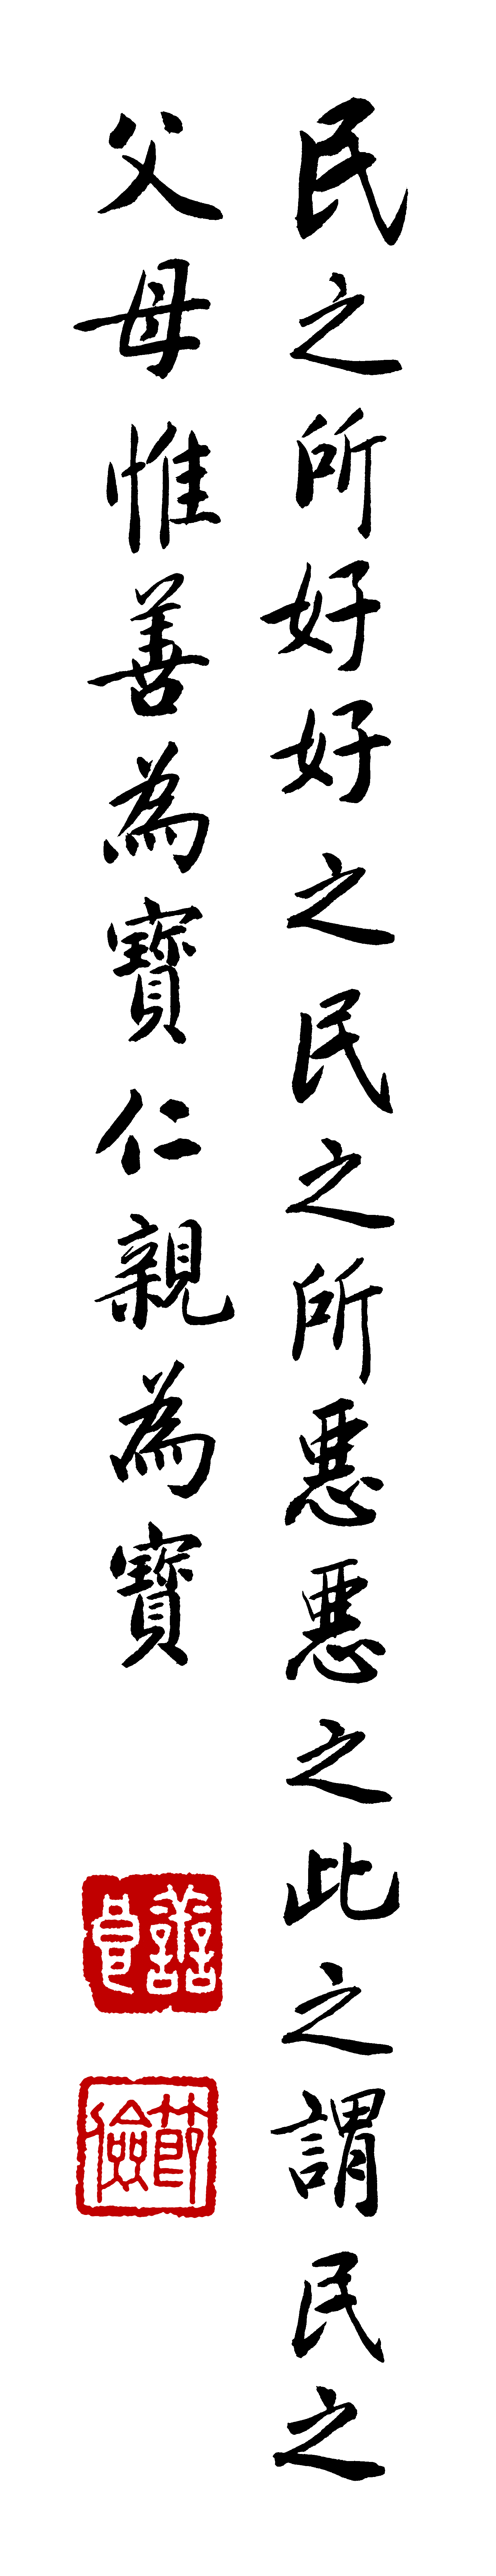 民之所好好之民之所惡惡之此之謂民之
父母惟善為寶仁親為寶
節儉